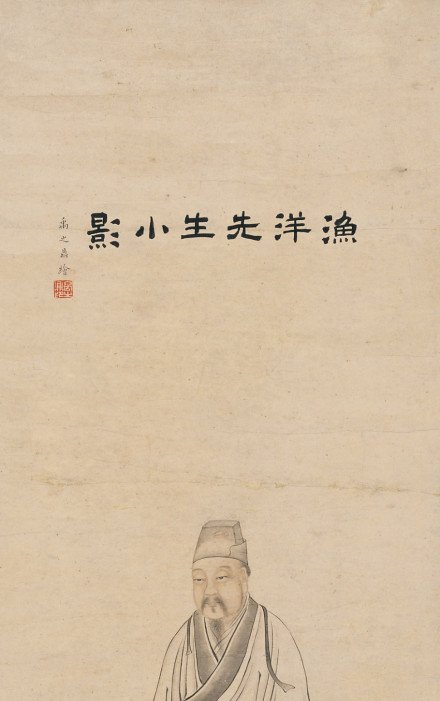 漁洋先生小影
禹之鼎繪